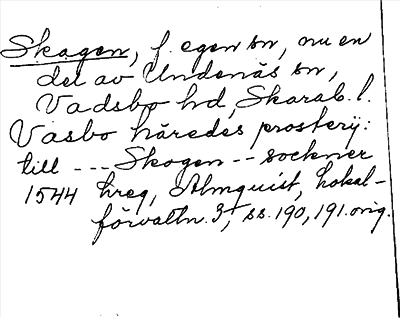 Skagen, f. egen sn, nu en
del av Undenäs sn,
Vadsbo hd, Skarab. l.
Vasbo häredes prosterij:
till --- Skogen -- sockner
1544 hreg, Almquist, Lokal-
förvaltn. 3, ss. 190, 191. orig.